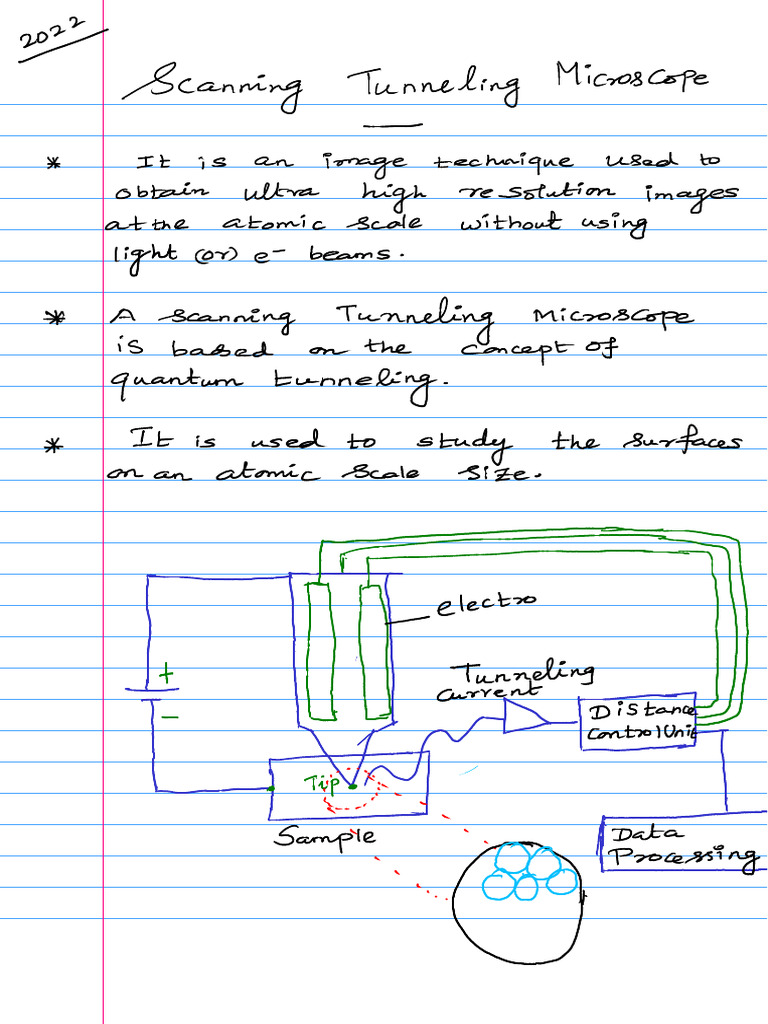 2022
Scanning Tunneling Microscope
* It is an image technique used to
obtain ultra high resolution images
at the atomic scale without using
light (or) e- beams.
* A scanning Tunneling Microscope
is based on the concept of
quantum tunneling.
* It is used to study the surfaces
on an atomic scale size.
electro
+
Tunneling
current
-
Distance
control Unit
Tip
Sample
Data
Processing